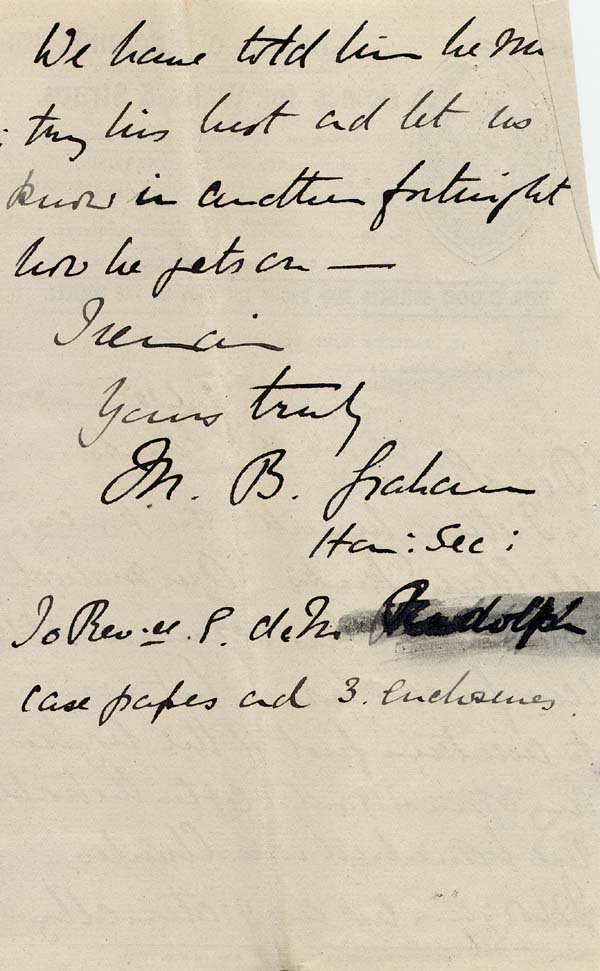 We have told him he m
try his best and let us
know in another fortnight
how he gets on —
I remain
Yours truly
M. B. Graham
Hon: Sec:
To Rev. E. P. de M. Rudolph
case papers and 3. enclosures.